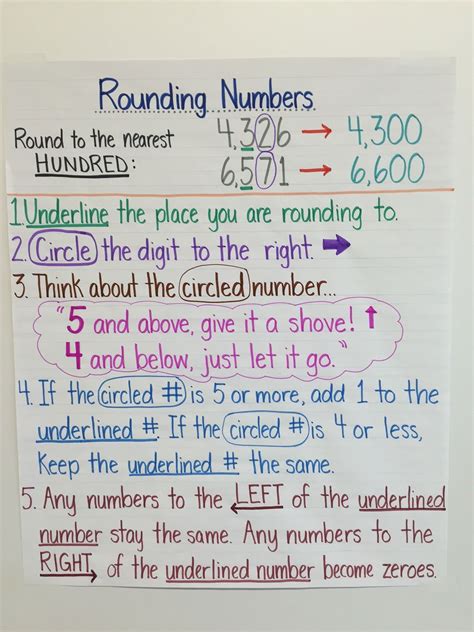 Rounding Numbers
Round to the nearest 4,326 → 4,300
HUNDRED: 6,571 → 6,600
1. Underline the place you are rounding to.
2. Circle the digit to the right. →
3. Think about the circled number...
"5 and above, give it a shove! ↑
4 and below, just let it go."
4. If the circled # is 5 or more, add 1 to the
underlined #. If the circled # is 4 or less,
Keep the underlined # the same.
5. Any numbers to the LEFT of the underlined
number stay the same. Any numbers to the
RIGHT of the underlined number become zeroes.